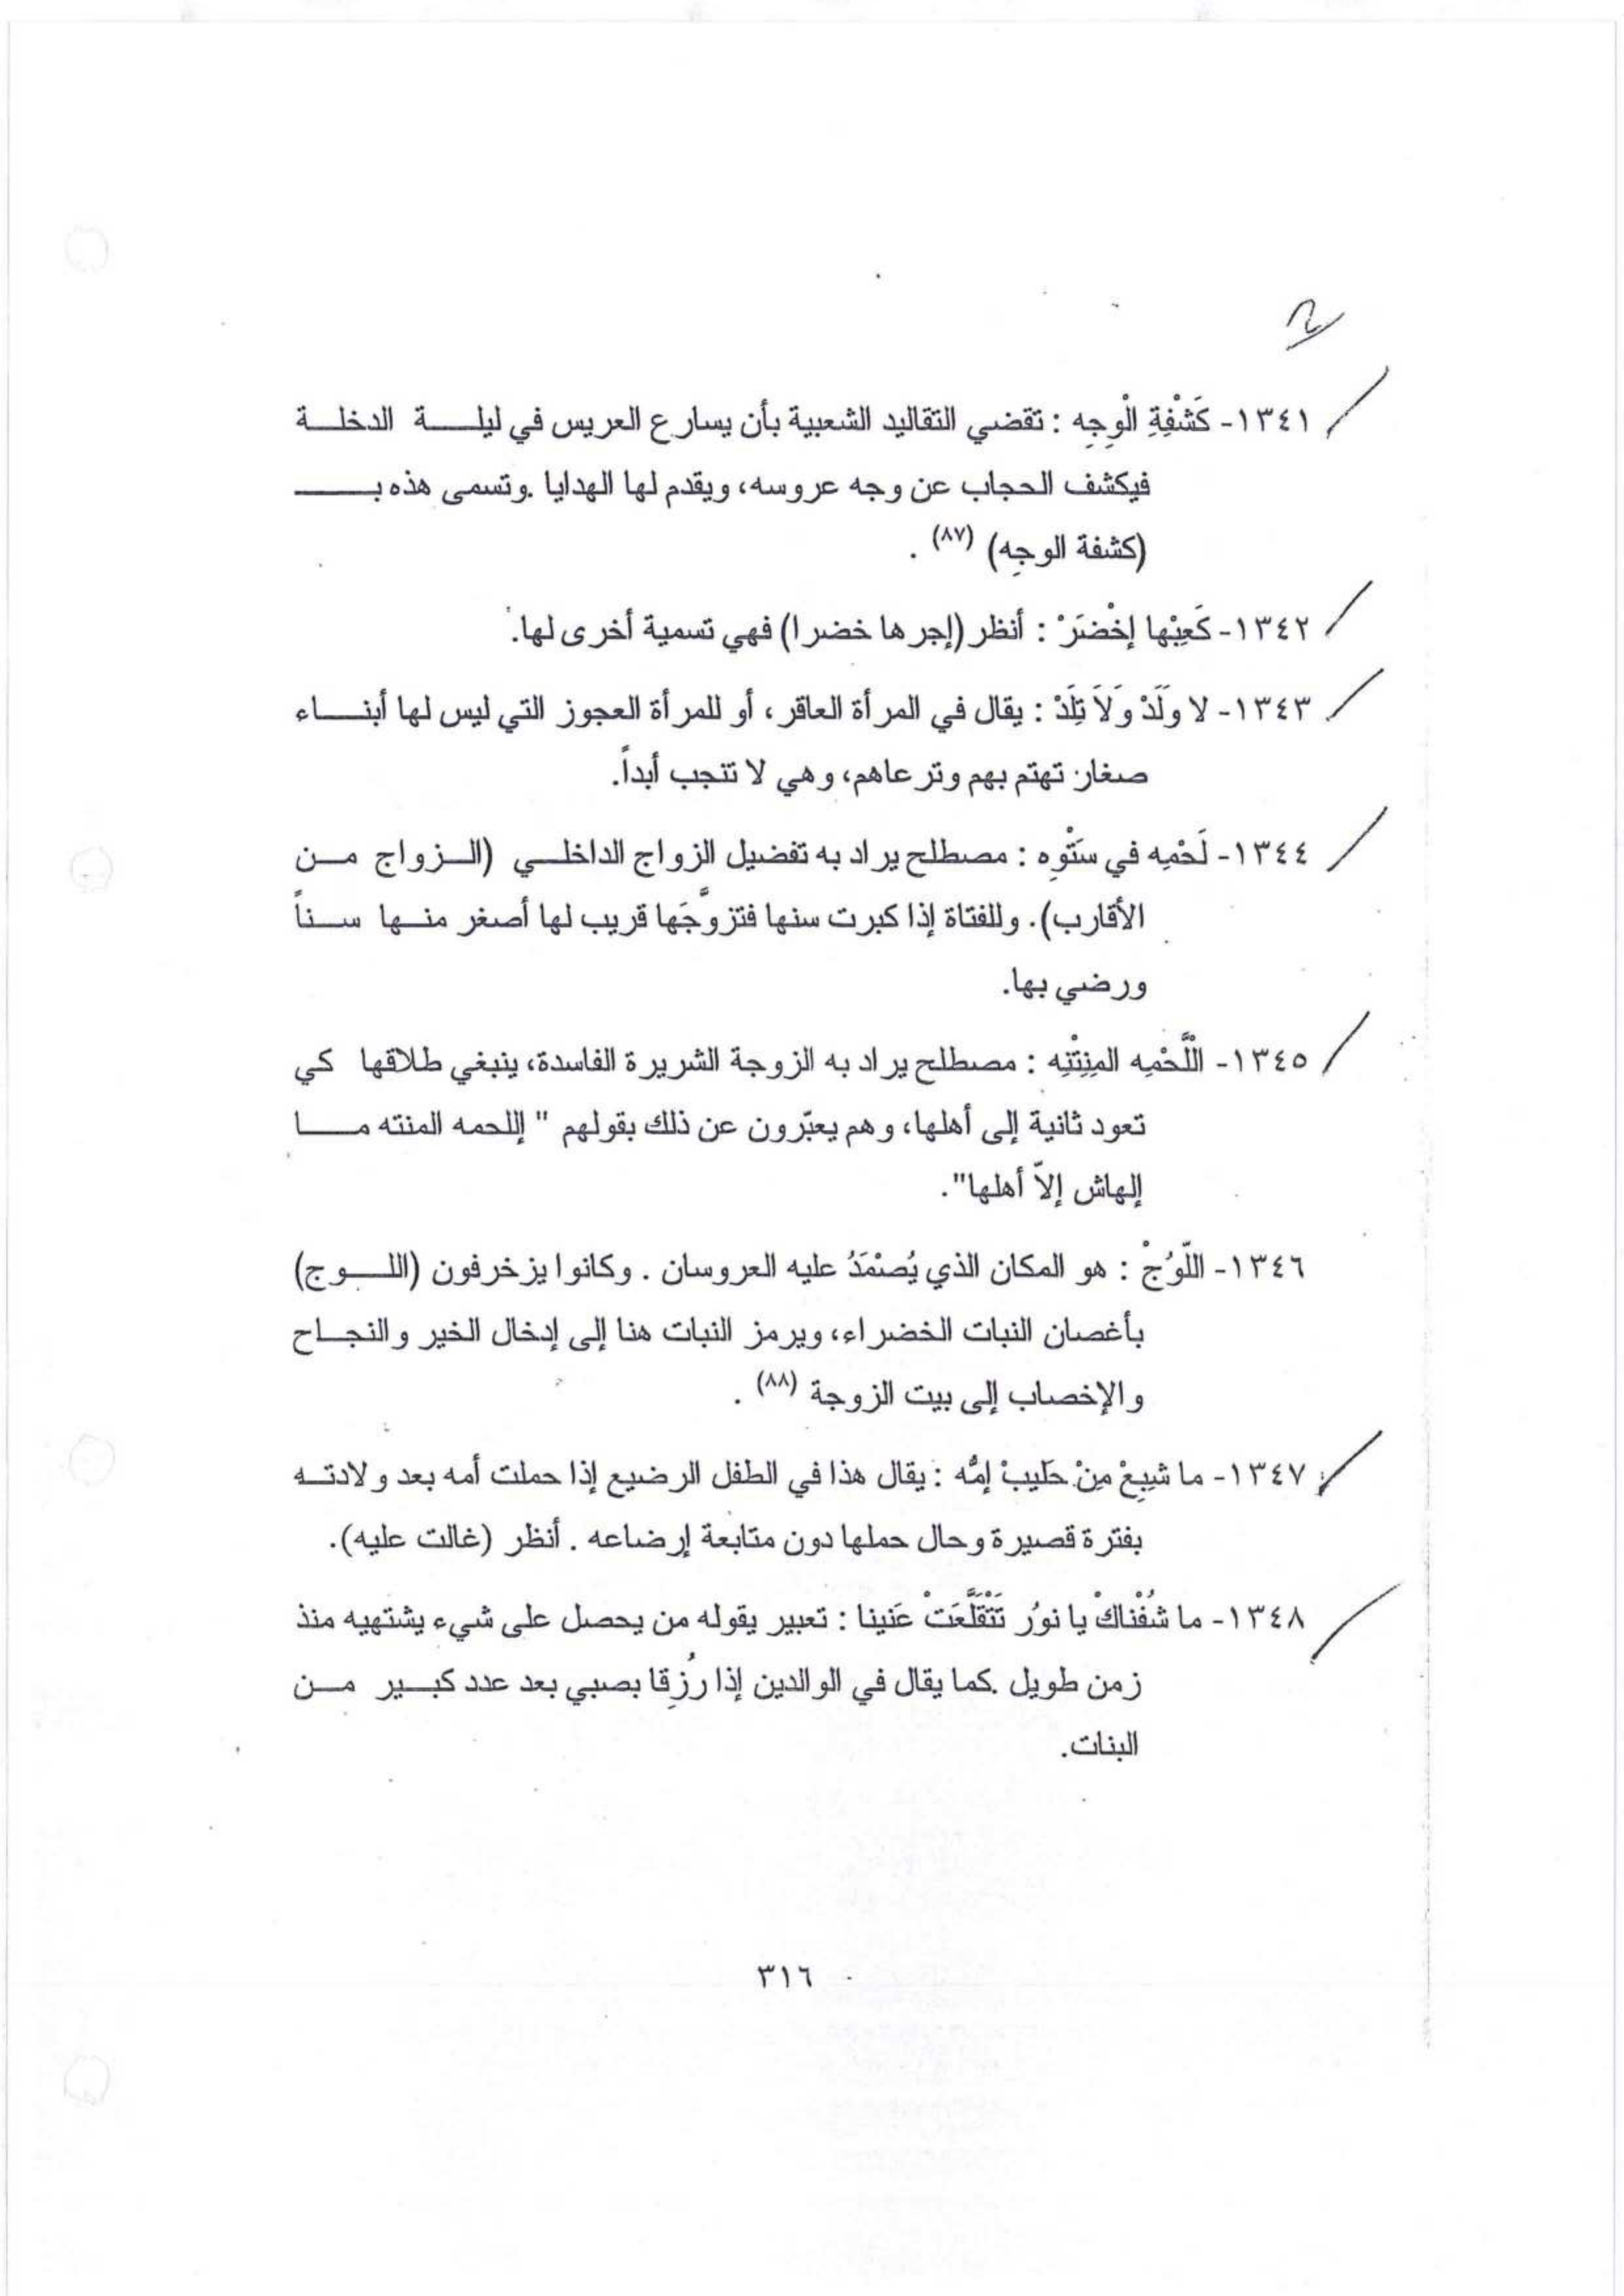 ١٣٤١- كَشْفِةِ الْوِجِه : تقضي التقاليد الشعبية بأن يسارع العريس في ليلة الدخلة
فيكشف الحجاب عن وجه عروسه، ويقدم لها الهدايا .وتسمى هذه بـ
(كشفة الوجِه) (٨٧) .
١٣٤٢- كَعِبْها إخْضَرْ : أنظر (إجرها خضرا) فهي تسمية أخرى لها.
١٣٤٣- لا وَلَدْ وَلاَ تِلَدْ : يقال في المرأة العاقر، أو للمرأة العجوز التي ليس لها أبناء
صغار تهتم بهم وترعاهم، وهي لا تنجب أبداً.
١٣٤٤- لَحْمِه في سَتْوِه : مصطلح يراد به تفضيل الزواج الداخلي (الزواج من
الأقارب). وللفتاة إذا كبرت سنها فتزوَّجَها قريب لها أصغر منها سناً
ورضي بها.
١٣٤٥- اللَّحْمِه المِنِتْنِه : مصطلح يراد به الزوجة الشريرة الفاسدة، ينبغي طلاقها كي
تعود ثانية إلى أهلها، وهم يعبّرون عن ذلك بقولهم " إللحمه المنتنه ما
إلهاش إلاّ أهلها".
١٣٤٦- اللّوُجْ : هو المكان الذي يُصْمَدُ عليه العروسان . وكانوا يزخرفون (اللوج)
بأغصان النبات الخضراء، ويرمز النبات هنا إلى إدخال الخير والنجاح
والإخصاب إلى بيت الزوجة (٨٨) .
١٣٤٧- ما شِبِعْ مِنْ حَليبْ إمُّه : يقال هذا في الطفل الرضيع إذا حملت أمه بعد ولادته
بفترة قصيرة وحال حملها دون متابعة إرضاعه . أنظر (غالت عليه).
١٣٤٨- ما شُفْناكْ يا نورُ تَتْقَلَّعَتْ عَنينا : تعبير يقوله من يحصل على شيء يشتهيه منذ
زمن طويل .كما يقال في الوالدين إذا رُزِقا بصبي بعد عدد كبير من
البنات.
٣١٦